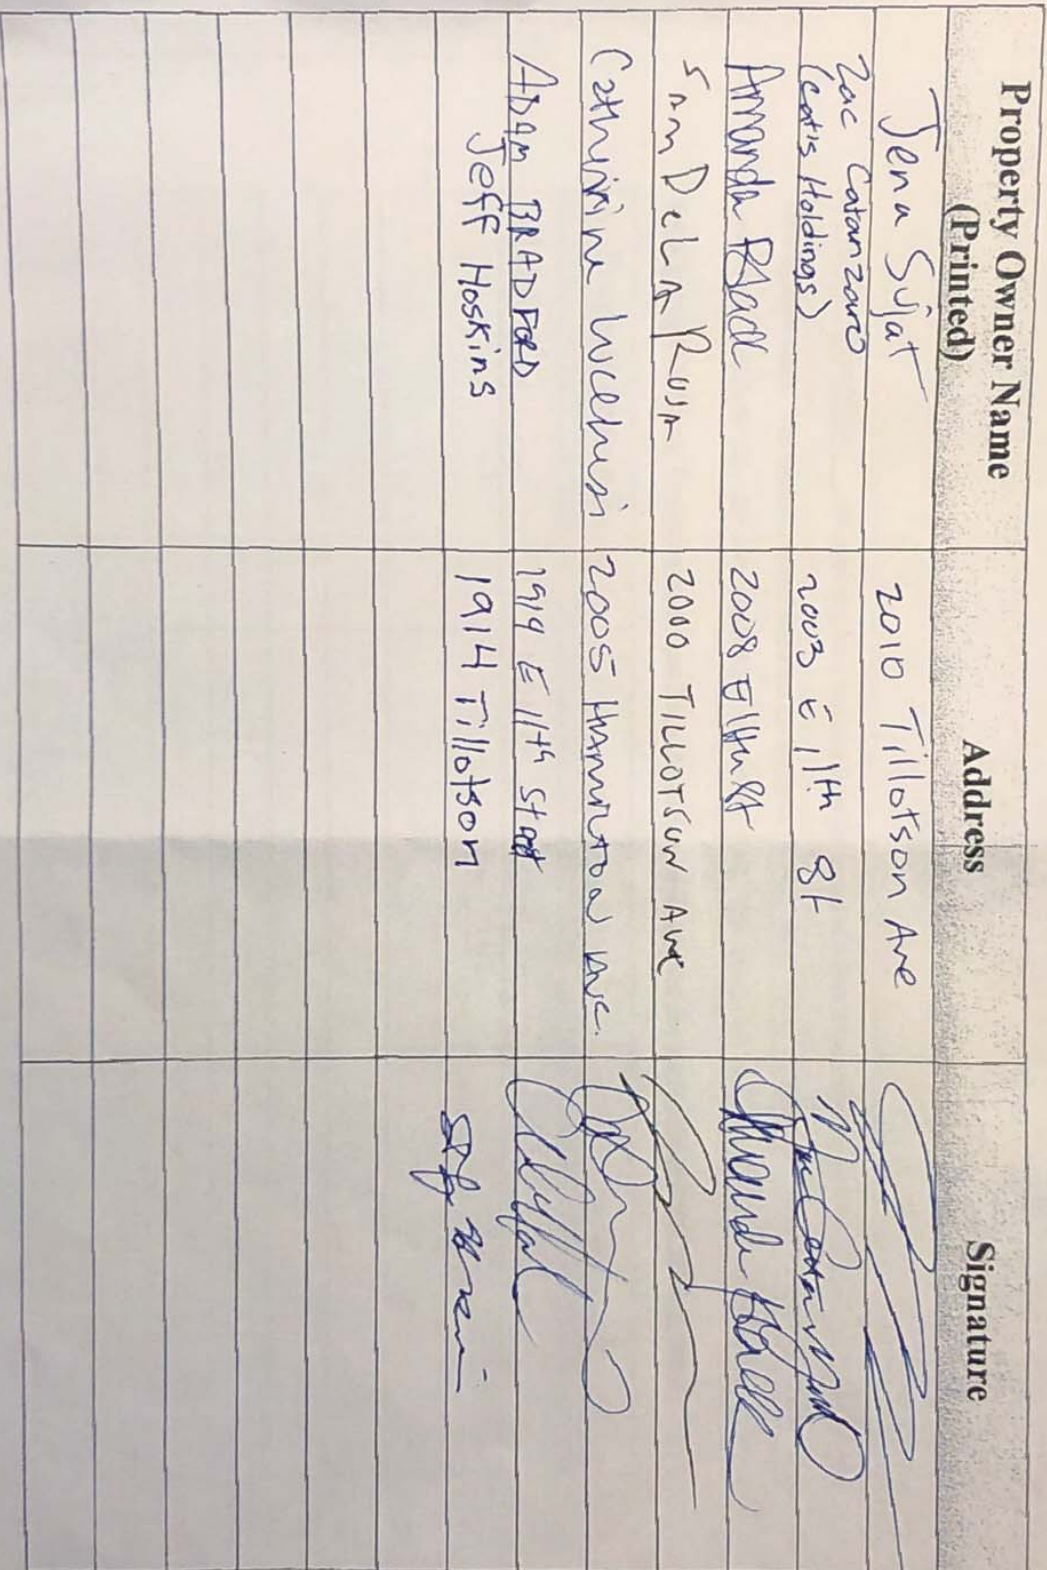 Property Owner Name
(Printed)
Address
Signature
Jena Sujat
2010 Tillotson Ave
Zac Catanzaro
(Cat's Holdings)
2003 E 11th St
Amanda Black
2008 E 11th St
Sam DeLA Rosa
2000 TILLOTSON Ave
Catherine
2005 HAMILTON Ave.
ADAM BRADFORD
1919 E 11th Street
Jeff Hoskins
1914 Tillotson